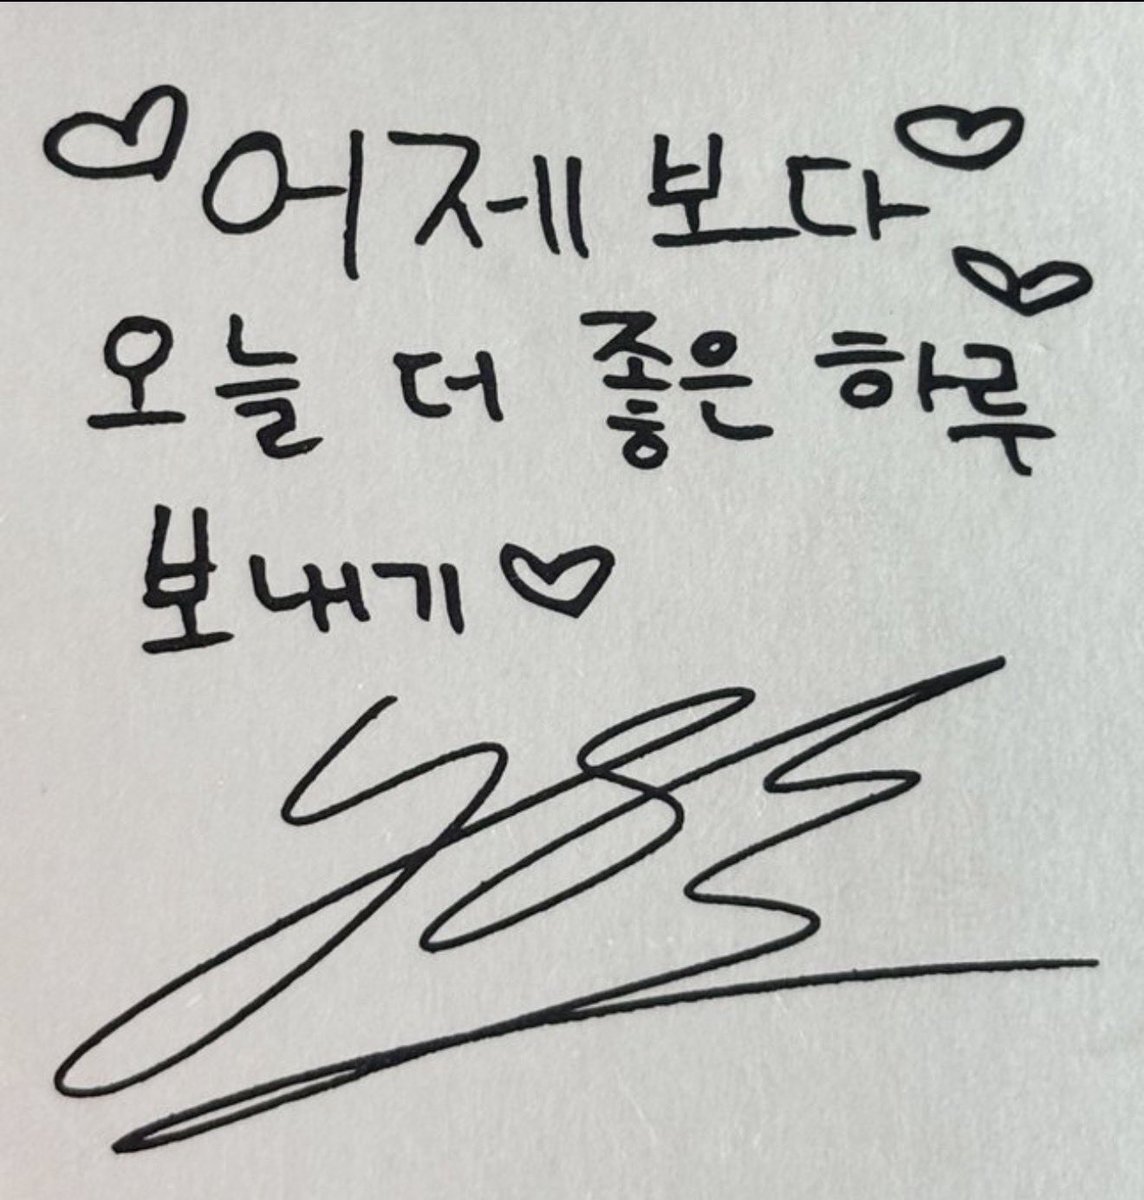 ♡어제보다♡
오늘 더 좋은 하루♡
보내기♡